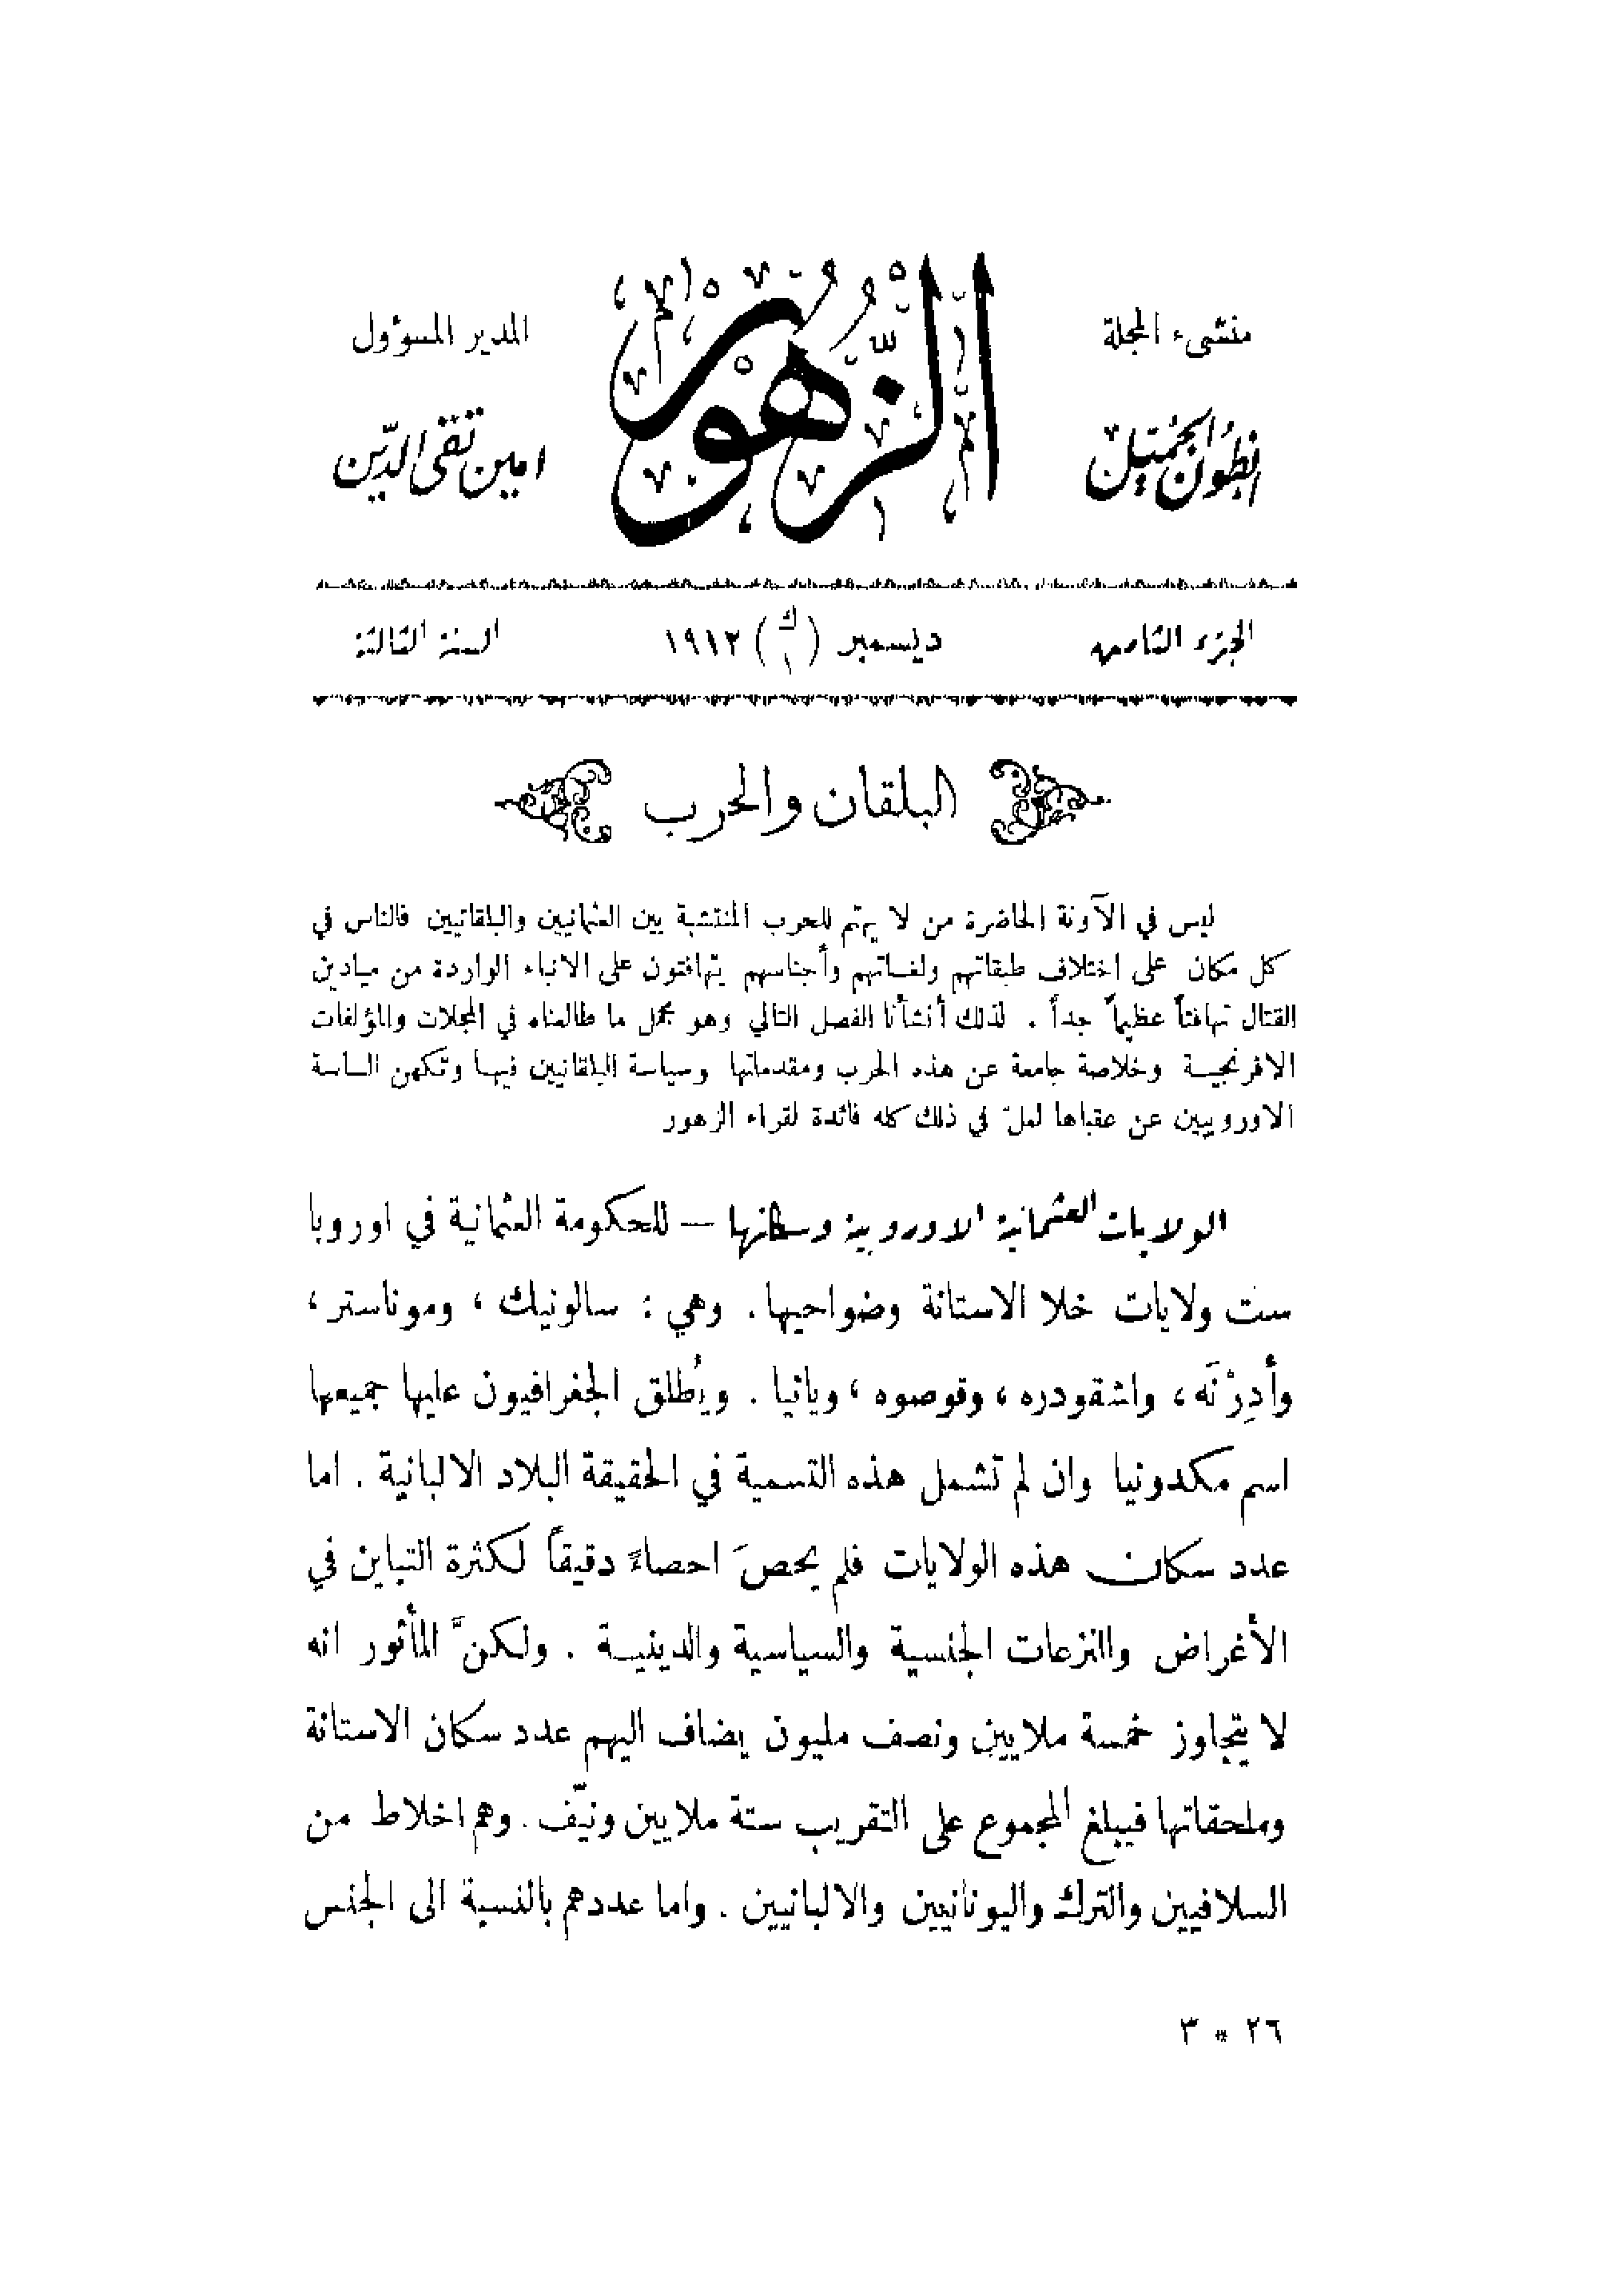 منشىء المجلة
انطون الجميّل
الزهور
المدير المسؤول
امين تقي الدّين
الجزء الثامن
ديسمبر (ك ١) ١٩١٢
السنة الثالثة
البلقان والحرب
ليس في الآونة الحاضرة من لا يهتم للحرب المنتشبة بين العثمانيين والبلقانيين فالناس في
كل مكان على اختلاف طبقاتهم ولغاتهم وأجناسهم يتهافتون على الانباء الواردة من ميادين
القتال تهافتاً عظيماً جداً . لذلك أنشأنا الفصل التالي وهو مجمل ما طالعناه في المجلات والمؤلفات
الافرنجية وخلاصة جامعة عن هذه الحرب ومقدماتها وسياسة البلقانيين فيها وتكهن الساسة
الاوروبيين عن عقباها لعلّ في ذلك كله فائدة لقراء الزهور
الولايات العثمانية الاوروبية وسكانها — للحكومة العثمانية في اوروبا
ست ولايات خلا الاستانة وضواحيها . وهي : سالونيك ، وموناستر ،
وأدِرْنَه ، واشقودره ، وقوصوه ، ويانيا . ويُطلق الجغرافيون عليها جميعها
اسم مكدونيا وان لم تشمل هذه التسمية في الحقيقة البلاد الالبانية . اما
عدد سكان هذه الولايات فلم يحصَ احصاءً دقيقاً لكثرة التباين في
الأغراض والنزعات الجنسية والسياسية والدينية . ولكنَّ المأثور انه
لا يتجاوز خمسة ملايين ونصف مليون يضاف اليهم عدد سكان الاستانة
وملحقاتها فيبلغ المجموع على التقريب ستة ملايين ونيّف . وهم اخلاط من
السلافيين والترك واليونانيين والالبانيين . واما عددهم بالنسبة الى الجنس
٢٦ * ٣